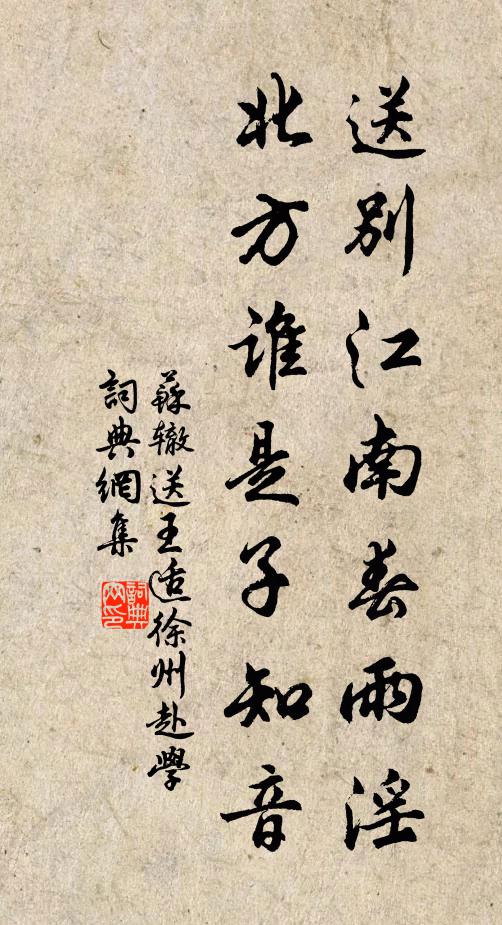 送別江南春雨淫
北方誰是子知音
蘇辙送王适徐州赴學
詞典網集
詞典网印